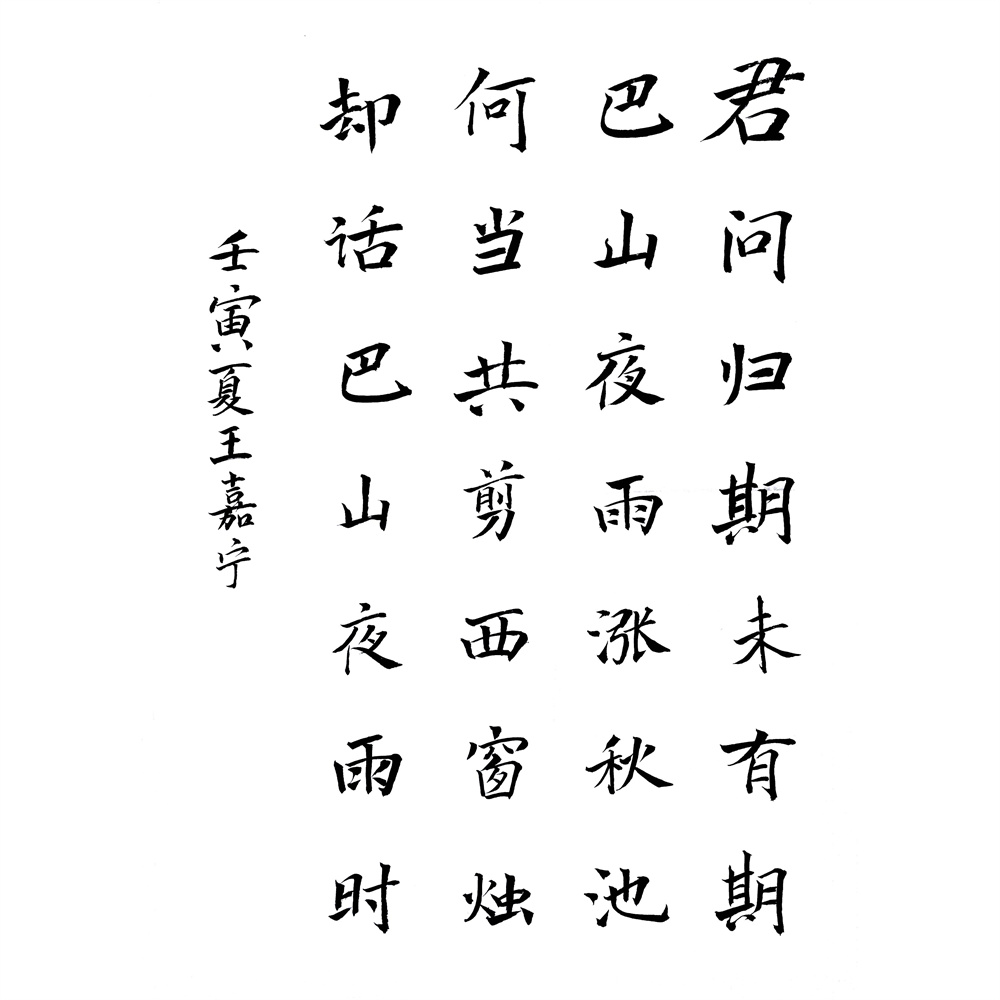 君问归期未有期
巴山夜雨涨秋池
何当共剪西窗烛
却话巴山夜雨时
壬寅夏王嘉宁